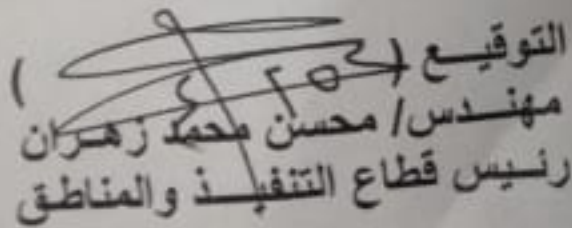 التوقيع (      )
مهندس/ محسن محمد زهران
رئيس قطاع التنفيذ والمناطق